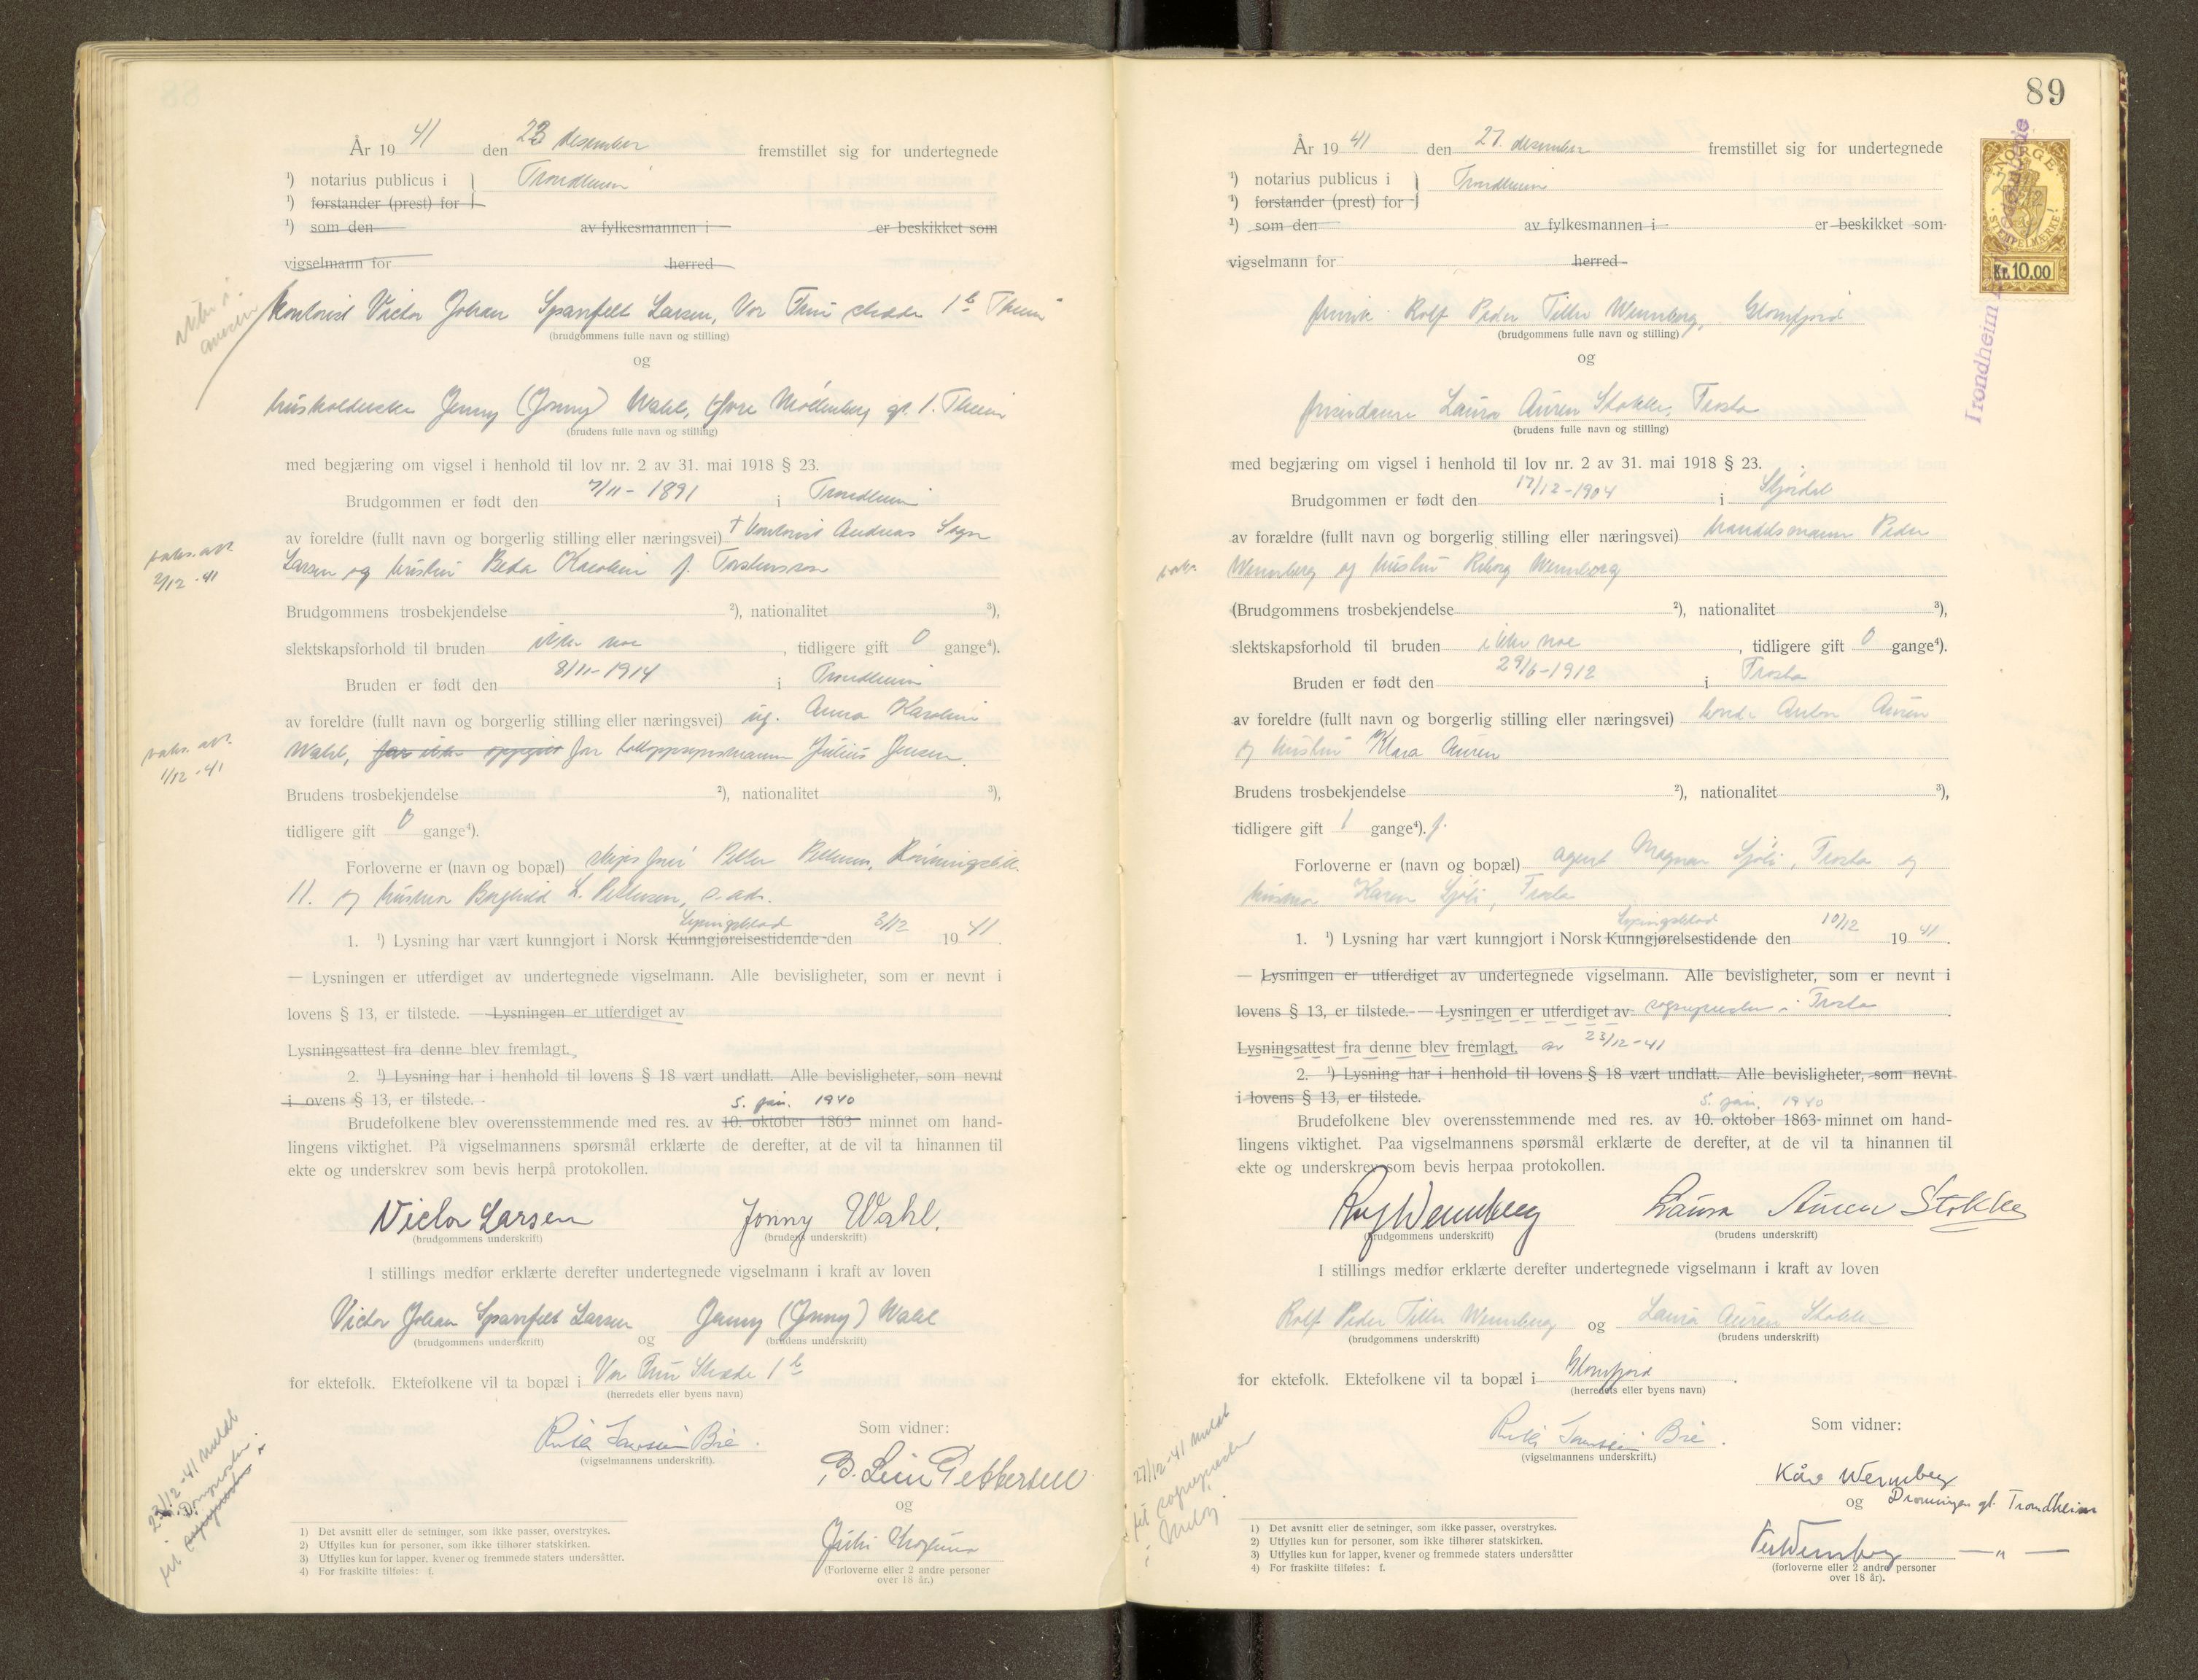 År 19 41 den 23 desember fremstillet sig for undertegnede
¹) notarius publicus i } Trondheim
¹) forstander (prest) for
¹) som den av fylkesmannen i er beskikket som
vigselmann for herred
Kontorist Victor Johan Spanfelt Larsen, Vor Frue strede 1 b Theim
(brudgommens fulle navn og stilling)
og
Jenny (Jonny) Wahl, Øvre Møllenberg gt. 1. Theim
(brudens fulle navn og stilling)
med begjæring om vigsel i henhold til lov nr. 2 av 31. mai 1918 § 23.
Brudgommen er født den 7/11 - 1891 i Trondheim
av foreldre (fullt navn og borgerlig stilling eller næringsvei) † kontorist Andreas
Larsen og hustru Beda Karolin f. Torstensson
2/12 - 41
Brudgommens trosbekjendelse ²), nationalitet ³),
slektskapsforhold til bruden ikke noe, tidligere gift 0 gange⁴).
Bruden er født den 8/11 - 1914 i Trondheim
av foreldre (fullt navn og borgerlig stilling eller næringsvei) ug. Anna Karolin
Wahl, far ikke oppgitt far tolloppsynsmann Julius Jensen.
1/12 - 41
Brudens trosbekjendelse ²), nationalitet ³),
tidligere gift 0 gange⁴).
Forloverne er (navn og bopæl) Petter Pettersen,
11. og husmor Borghild L. Pettersen, s. adr.
Lysningsblad
1. ¹) Lysning har vært kunngjort i Norsk Kunngjørelsestidende den 3/12 19 41.
— Lysningen er utferdiget av undertegnede vigselmann. Alle bevisligheter, som er nevnt i
lovens § 13, er tilstede. — Lysningen er utferdiget av
Lysningsattest fra denne blev fremlagt.
2. ¹) Lysning har i henhold til lovens § 18 vært undlatt. Alle bevisligheter, som nevnt
i ovens § 13, er tilstede.
5. jan. 1940
Brudefolkene blev overensstemmende med res. av 10. oktober 1863 minnet om hand-
lingens viktighet. På vigselmannens spørsmål erklærte de derefter, at de vil ta hinannen til
ekte og underskrev som bevis herpå protokollen.
Victor Larsen Jonny Wahl.
(brudgommens underskrift) (brudens underskrift)
I stillings medfør erklærte derefter undertegnede vigselmann i kraft av loven
Victor Johan Spanfelt Larsen og Jenny (Jonny) Wahl
(brudgommens underskrift) (brudens underskrift)
for ektefolk. Ektefolkene vil ta bopæl i Vor Frue Strede 1 b
(herredets eller byens navn)
Som vidner:
(vigselmannens underskrift).
og
(Forloverne eller 2 andre personer
over 18 år.)
23/12-41 meldt
til
1) Det avsnitt eller de setninger, som ikke passer, overstrykes.
2) Utfylles kun for personer, som ikke tilhører statskirken.
3) Utfylles kun for lapper, kvener og fremmede staters undersåtter.
4) For fraskilte tilføies: f.
89
NORGE
STEMPELMERKE
Kr. 10.00
Trondheim
År 19 41 den 27. desember fremstillet sig for undertegnede
¹) notarius publicus i } Trondheim
¹) forstander (prest) for
¹) som den av fylkesmannen i er beskikket som
vigselmann for herred
Rolf Peder Tiller Wennberg, Glomfjord
(brudgommens fulle navn og stilling)
og
Laura Auren Stokke, Frosta
(brudens fulle navn og stilling)
med begjæring om vigsel i henhold til lov nr. 2 av 31. mai 1918 § 23.
Brudgommen er født den 17/12-1904 i Stjørdal
av forældre (fullt navn og borgerlig stilling eller næringsvei) handelsmann Peder
Wennberg og hustru Wennberg
(Brudgommens trosbekjendelse ²), nationalitet ³),
slektskapsforhold til bruden ikke noe, tidligere gift 0 gange⁴).
Bruden er født den 29/6-1912 i Frosta
av foreldre (fullt navn og borgerlig stilling eller næringsvei) bonde Anton Auren
og hustru Klara Auren
Brudens trosbekjendelse ²), nationalitet ³),
tidligere gift 1 gange⁴). f.
Forloverne er (navn og bopæl) agent Magnar Sjøli, Frosta og
husmor Karen Sjøli, Frosta
Lysningsblad
1. ¹) Lysning har vært kunngjort i Norsk Kunngjørelsestidende den 10/12 19 41.
— Lysningen er utferdiget av undertegnede vigselmann. Alle bevisligheter, som er nevnt i
lovens § 13, er tilstede. — Lysningen er utferdiget av sogneprester i Frosta
Lysningsattest fra denne blev fremlagt. av 23/12-41
2. ¹) Lysning har i henhold til lovens § 18 vært undlatt. Alle bevisligheter, som nevnt
i lovens § 13, er tilstede.
5. jan. 1940
Brudefolkene blev overensstemmende med res. av 10. oktober 1863 minnet om hand-
lingens viktighet. Paa vigselmannens spørsmål erklærte de derefter, at de vil ta hinannen til
ekte og underskrev som bevis herpaa protokollen.
Rolf Wennberg Laura Auren Stokke
(brudgommens underskrift) (brudens underskrift)
I stillings medfør erklærte derefter undertegnede vigselmann i kraft av loven
Rolf Peder Tiller Wennberg og Laura Auren Stokke
(brudgommens underskrift) (brudens underskrift)
for ektefolk. Ektefolkene vil ta bopæl i Glomfjord.
(herredets eller byens navn)
Som vidner:
(vigselmannens underskrift.)
Kåre Wennberg
og Dronningen gt. Trondheim
Wennberg — " —
(forloverne eller 2 andre personer
over 18 år).
27/12-41 meldt
til sogneprester
i
1) Det avsnitt eller de setninger, som ikke passer, overstrykes.
2) Utfylles kun for personer, som ikke tilhører statskirken.
3) Utfylles kun for lapper, kvener og fremmede staters undersåtter
4) For fraskilte tilføies: f.